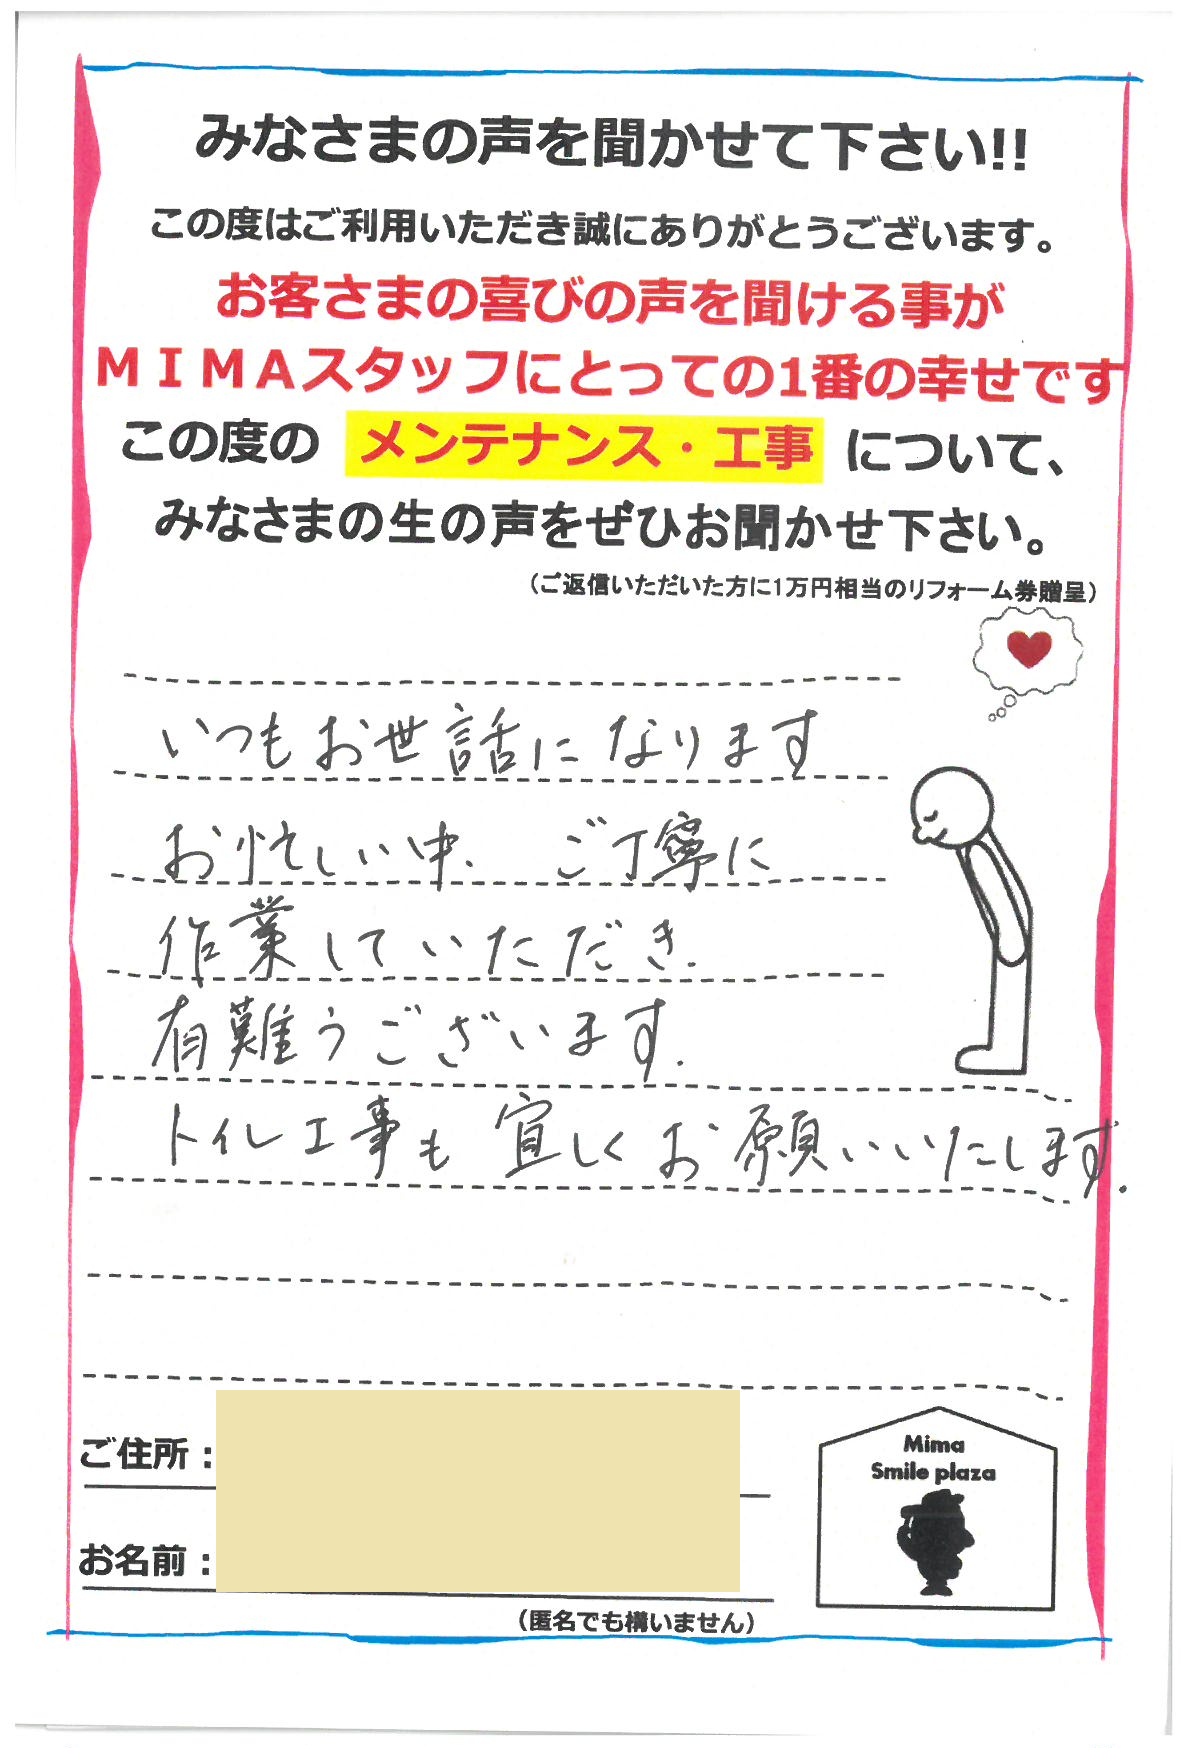 みなさまの声を聞かせて下さい!!
この度はご利用いただき誠にありがとうございます。
お客さまの喜びの声を聞ける事が
ＭＩＭＡスタッフにとっての1番の幸せです
この度の メンテナンス・工事 について、
みなさまの生の声をぜひお聞かせ下さい。
（ご返信いただいた方に1万円相当のリフォーム券贈呈）
いつもお世話になります
お忙しい中、ご丁寧に
作業していただき、
有難うございます。
トイレ工事も宜しくお願いいたします。
ご住所：
お名前：
（匿名でも構いません）
Mima
Smile plaza